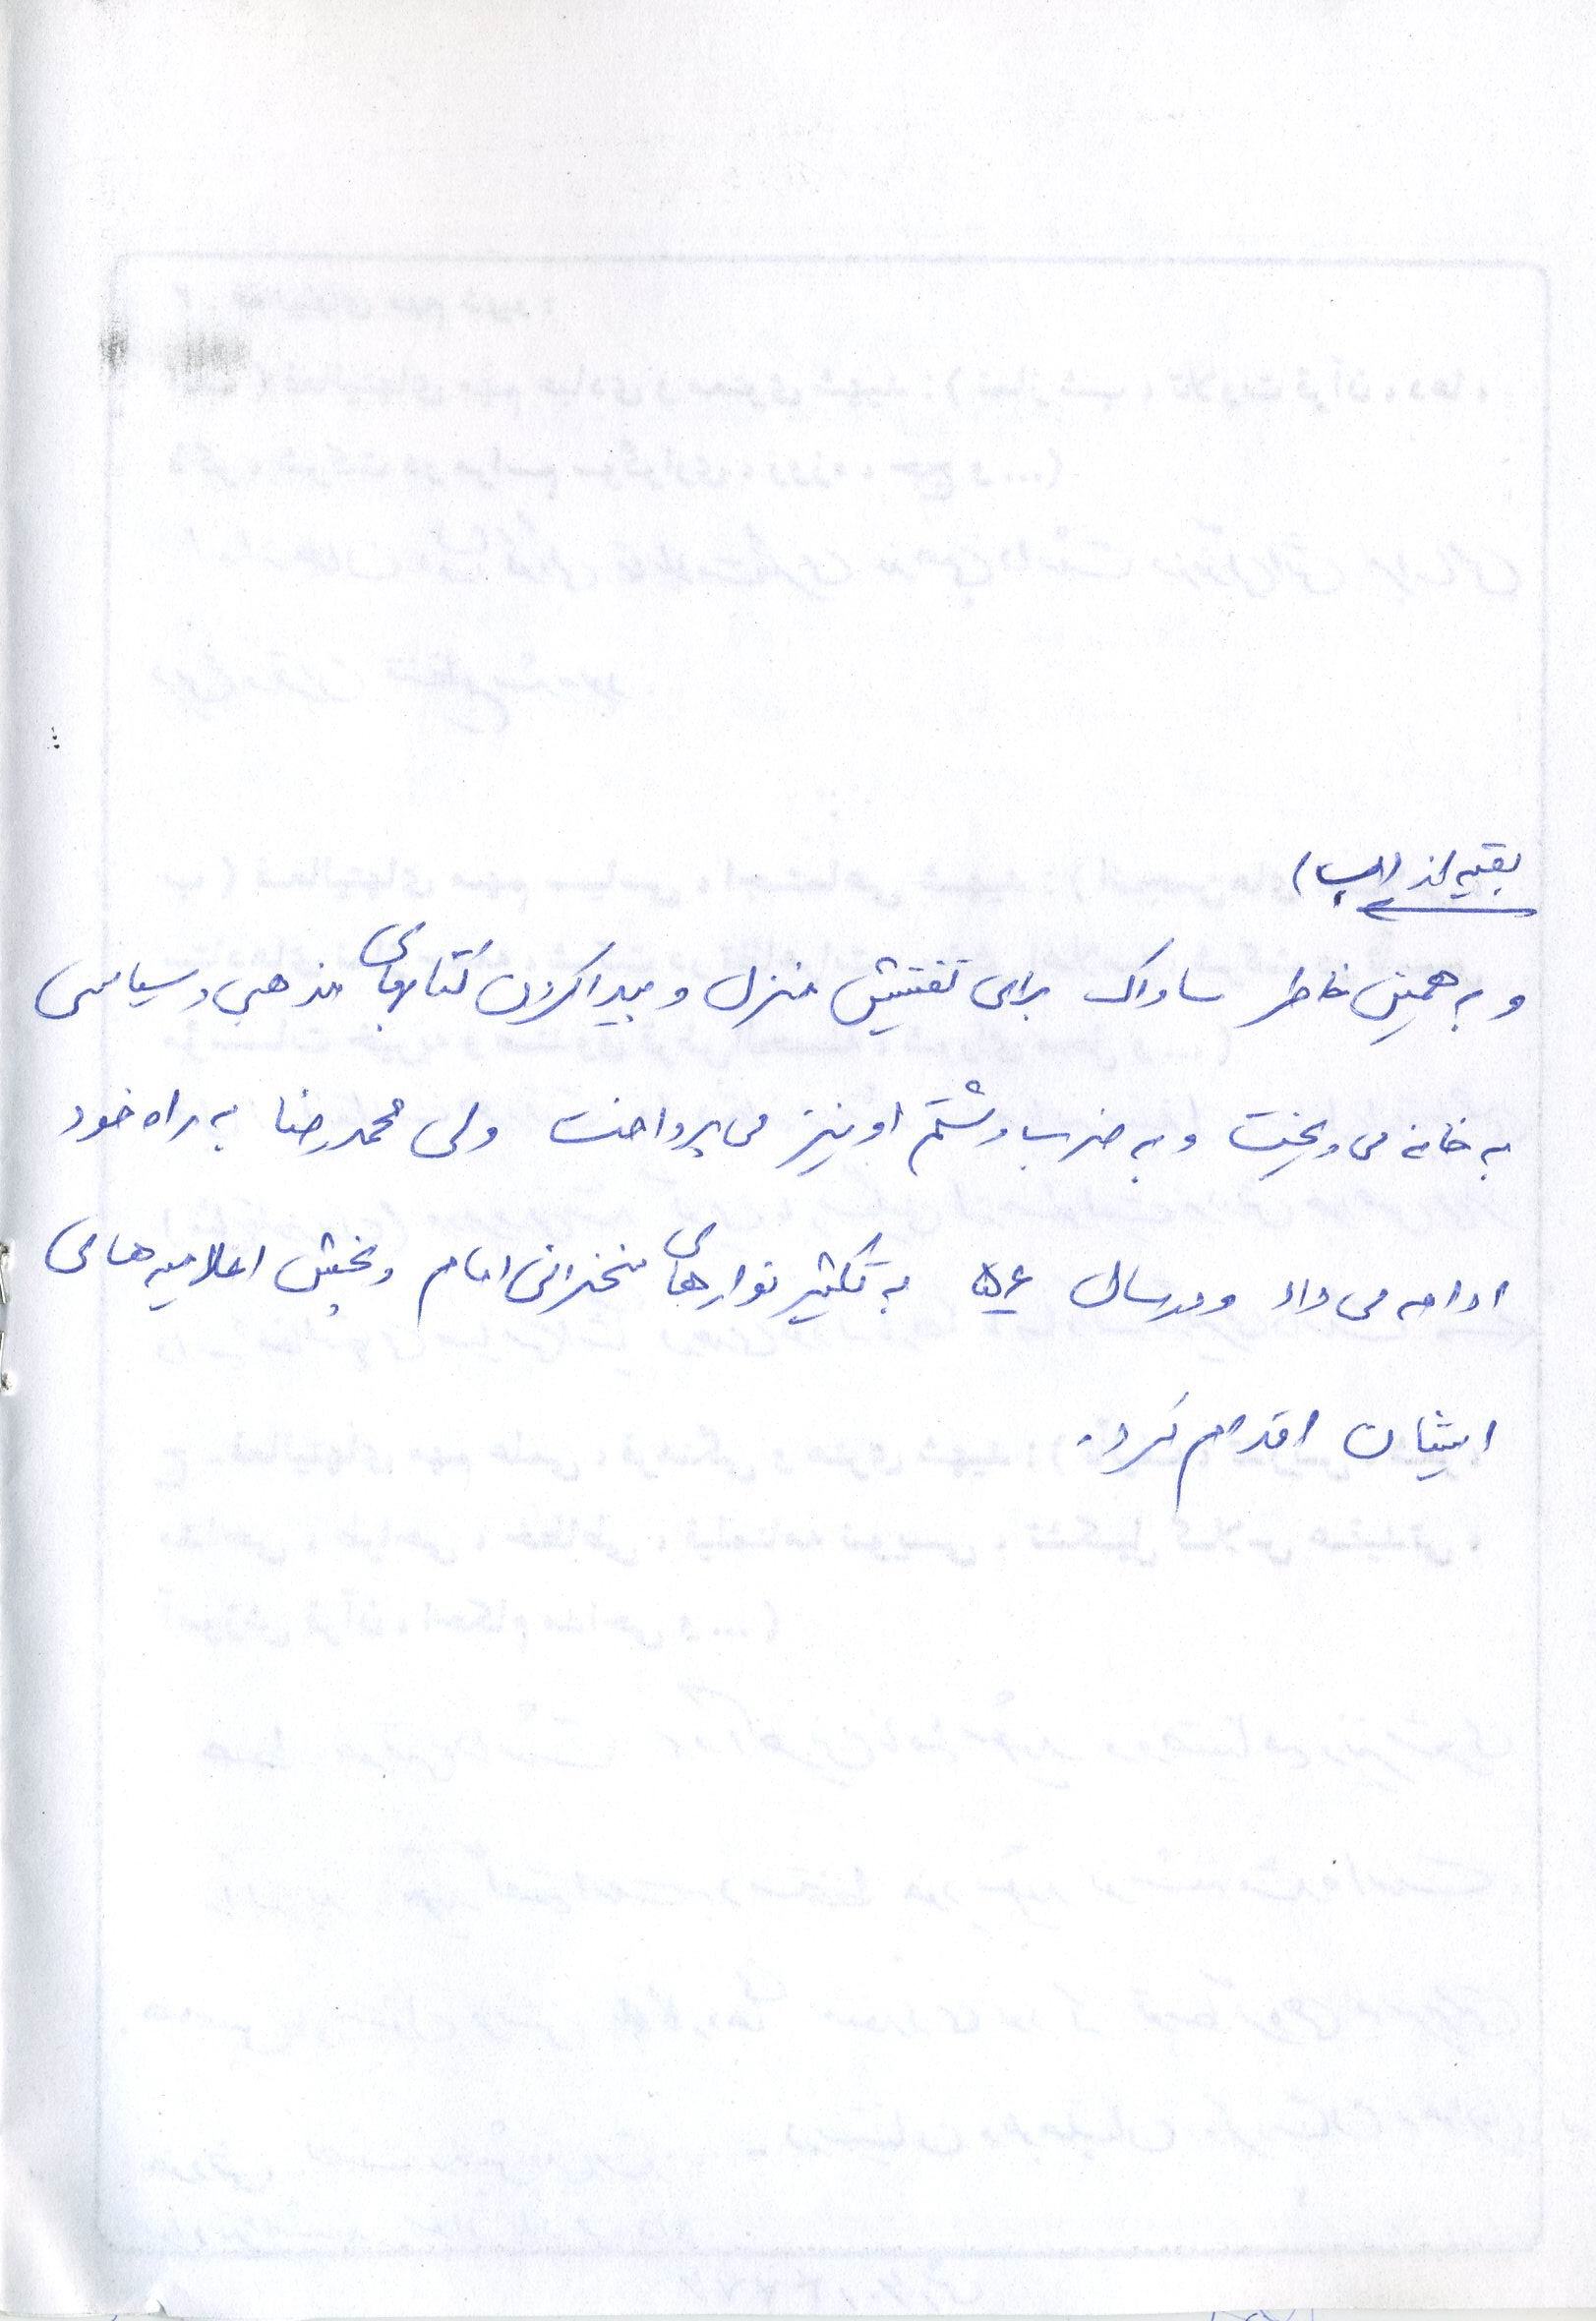 بقیه از (ب)
و به همین خاطر ساواک برای تفتیش منزل و پیدا کردن کتابهای مذهبی و سیاسی
به خانه می ریخت و به ضرب و شتم او نیز می پرداخت ولی محمدرضا به راه خود
ادامه می داد و در سال ۵۶ به تکثیر نوارهای سخنرانی امام و پخش اعلامیه های
ایشان اقدام کرد.